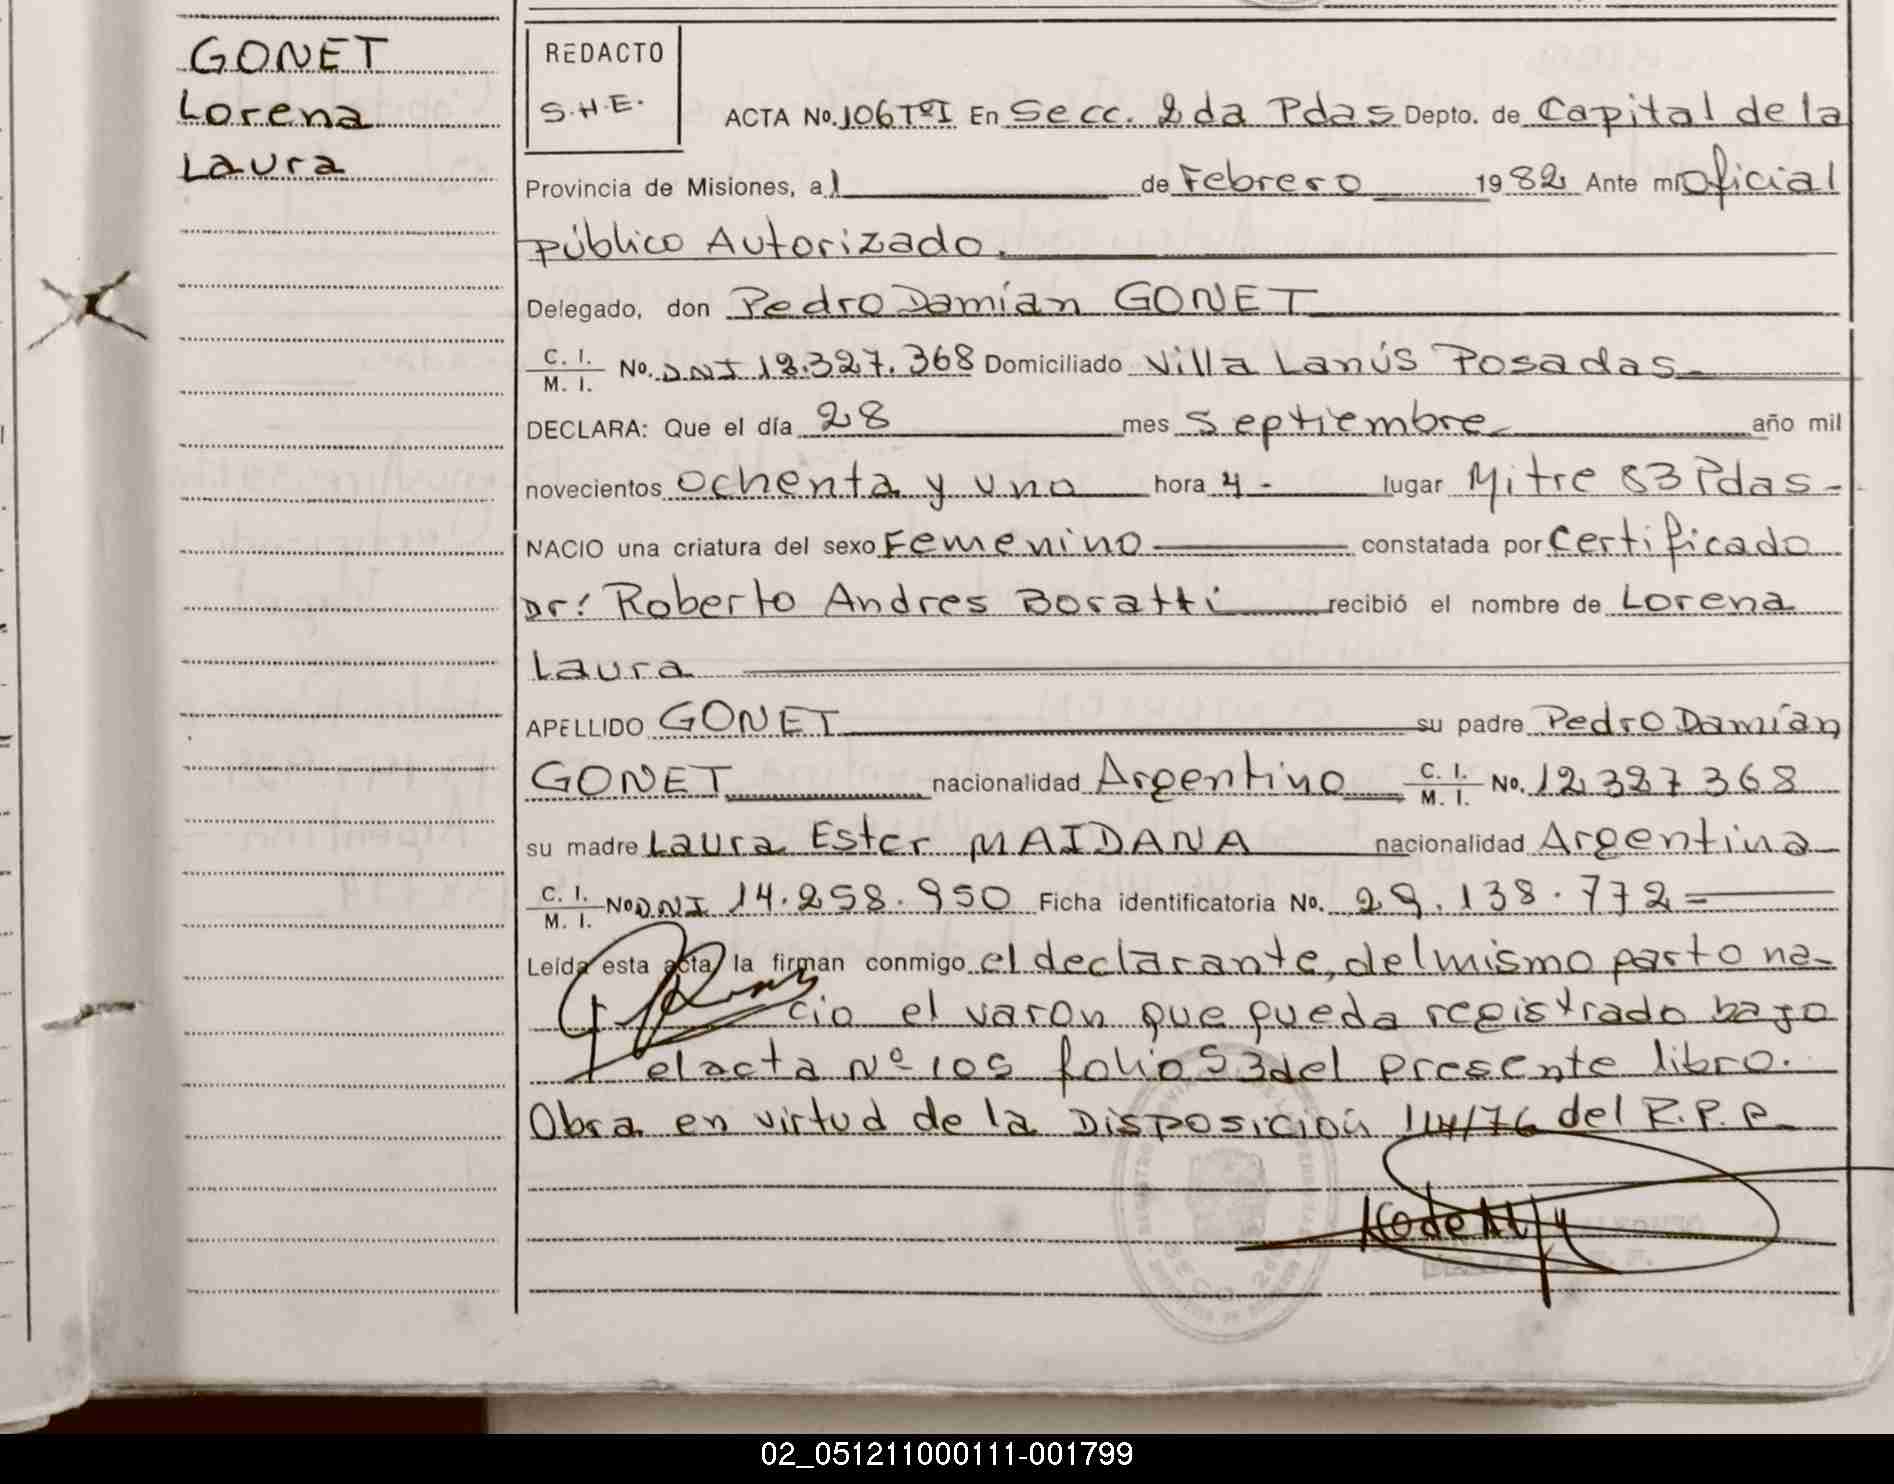 GONET
Lorena
Laura
REDACTO
S.H.E.
ACTA No. 106 TºI En Secc. 2da Pdas Depto. de Capital de la
Provincia de Misiones, a 1 de Febrero 1982 Ante mi Oficial
Público Autorizado.
Delegado, don Pedro Damián GONET
C. I. / M. I. No. DNI 12.327.368 Domiciliado Villa Lanús Posadas
DECLARA: Que el día 28 mes Septiembre año mil
novecientos ochenta y uno hora 4 - lugar Mitre 83 Pdas -
NACIO una criatura del sexo Femenino constatada por Certificado
Dr: Roberto Andres Boratti recibió el nombre de Lorena
Laura
APELLIDO GONET su padre Pedro Damián
GONET nacionalidad Argentino C. I. / M. I. No. 12 327 368
su madre Laura Ester MAIDANA nacionalidad Argentina
C. I. / M. I. No DNI 14.258.950 Ficha identificatoria No. 29.138.772 =
Leída esta acta la firman conmigo el declarante, del mismo parto na-
cio el varon que queda registrado bajo
el acta Nº 105 folio 53 del presente libro.
Obra en virtud de la Disposición 114/76 del R.P.P.
02_051211000111-001799